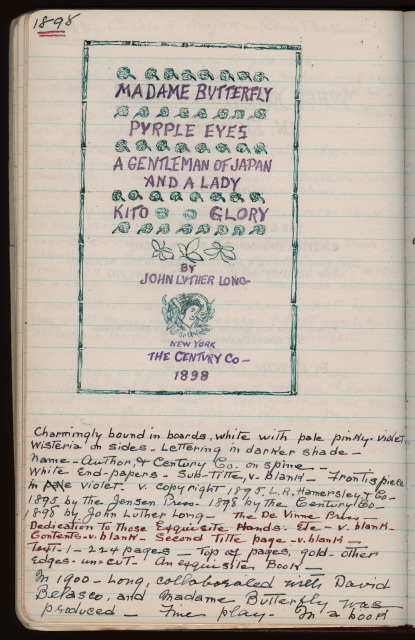 1898
MADAME BUTTERFLY
PVRPLE EYES
A GENTLEMAN OF JAPAN
AND A LADY
KITO GLORY
BY
JOHN LVTHER LONG
NEW YORK
THE CENTVRY CO—
1898
Charmingly bound in boards, white with pale pinky-violet
Wisteria on sides - Lettering in darker shade -
name - Author, & Century Co. on spine -
White End-papers - Sub-Title, v. blank - Frontispiece
in violet. v. Copyright 1895. L.R. Hamersley & Co-
1895 by the Jensen Press. 1898 by the Century Co-
1898 by John Luther Long - The De Vinne Press
Dedication to Those Exquisite Hands. Etc - v. blank -
Contents - v. blank - Second Title page - v. blank -
Text - 1 - 224 pages - Top of pages, gold - other
edges - un-cut. An exquisite Book -
In 1900 - Long, collaborated with David
Belasco, and Madame Butterfly was
produced - Fine play. In a book